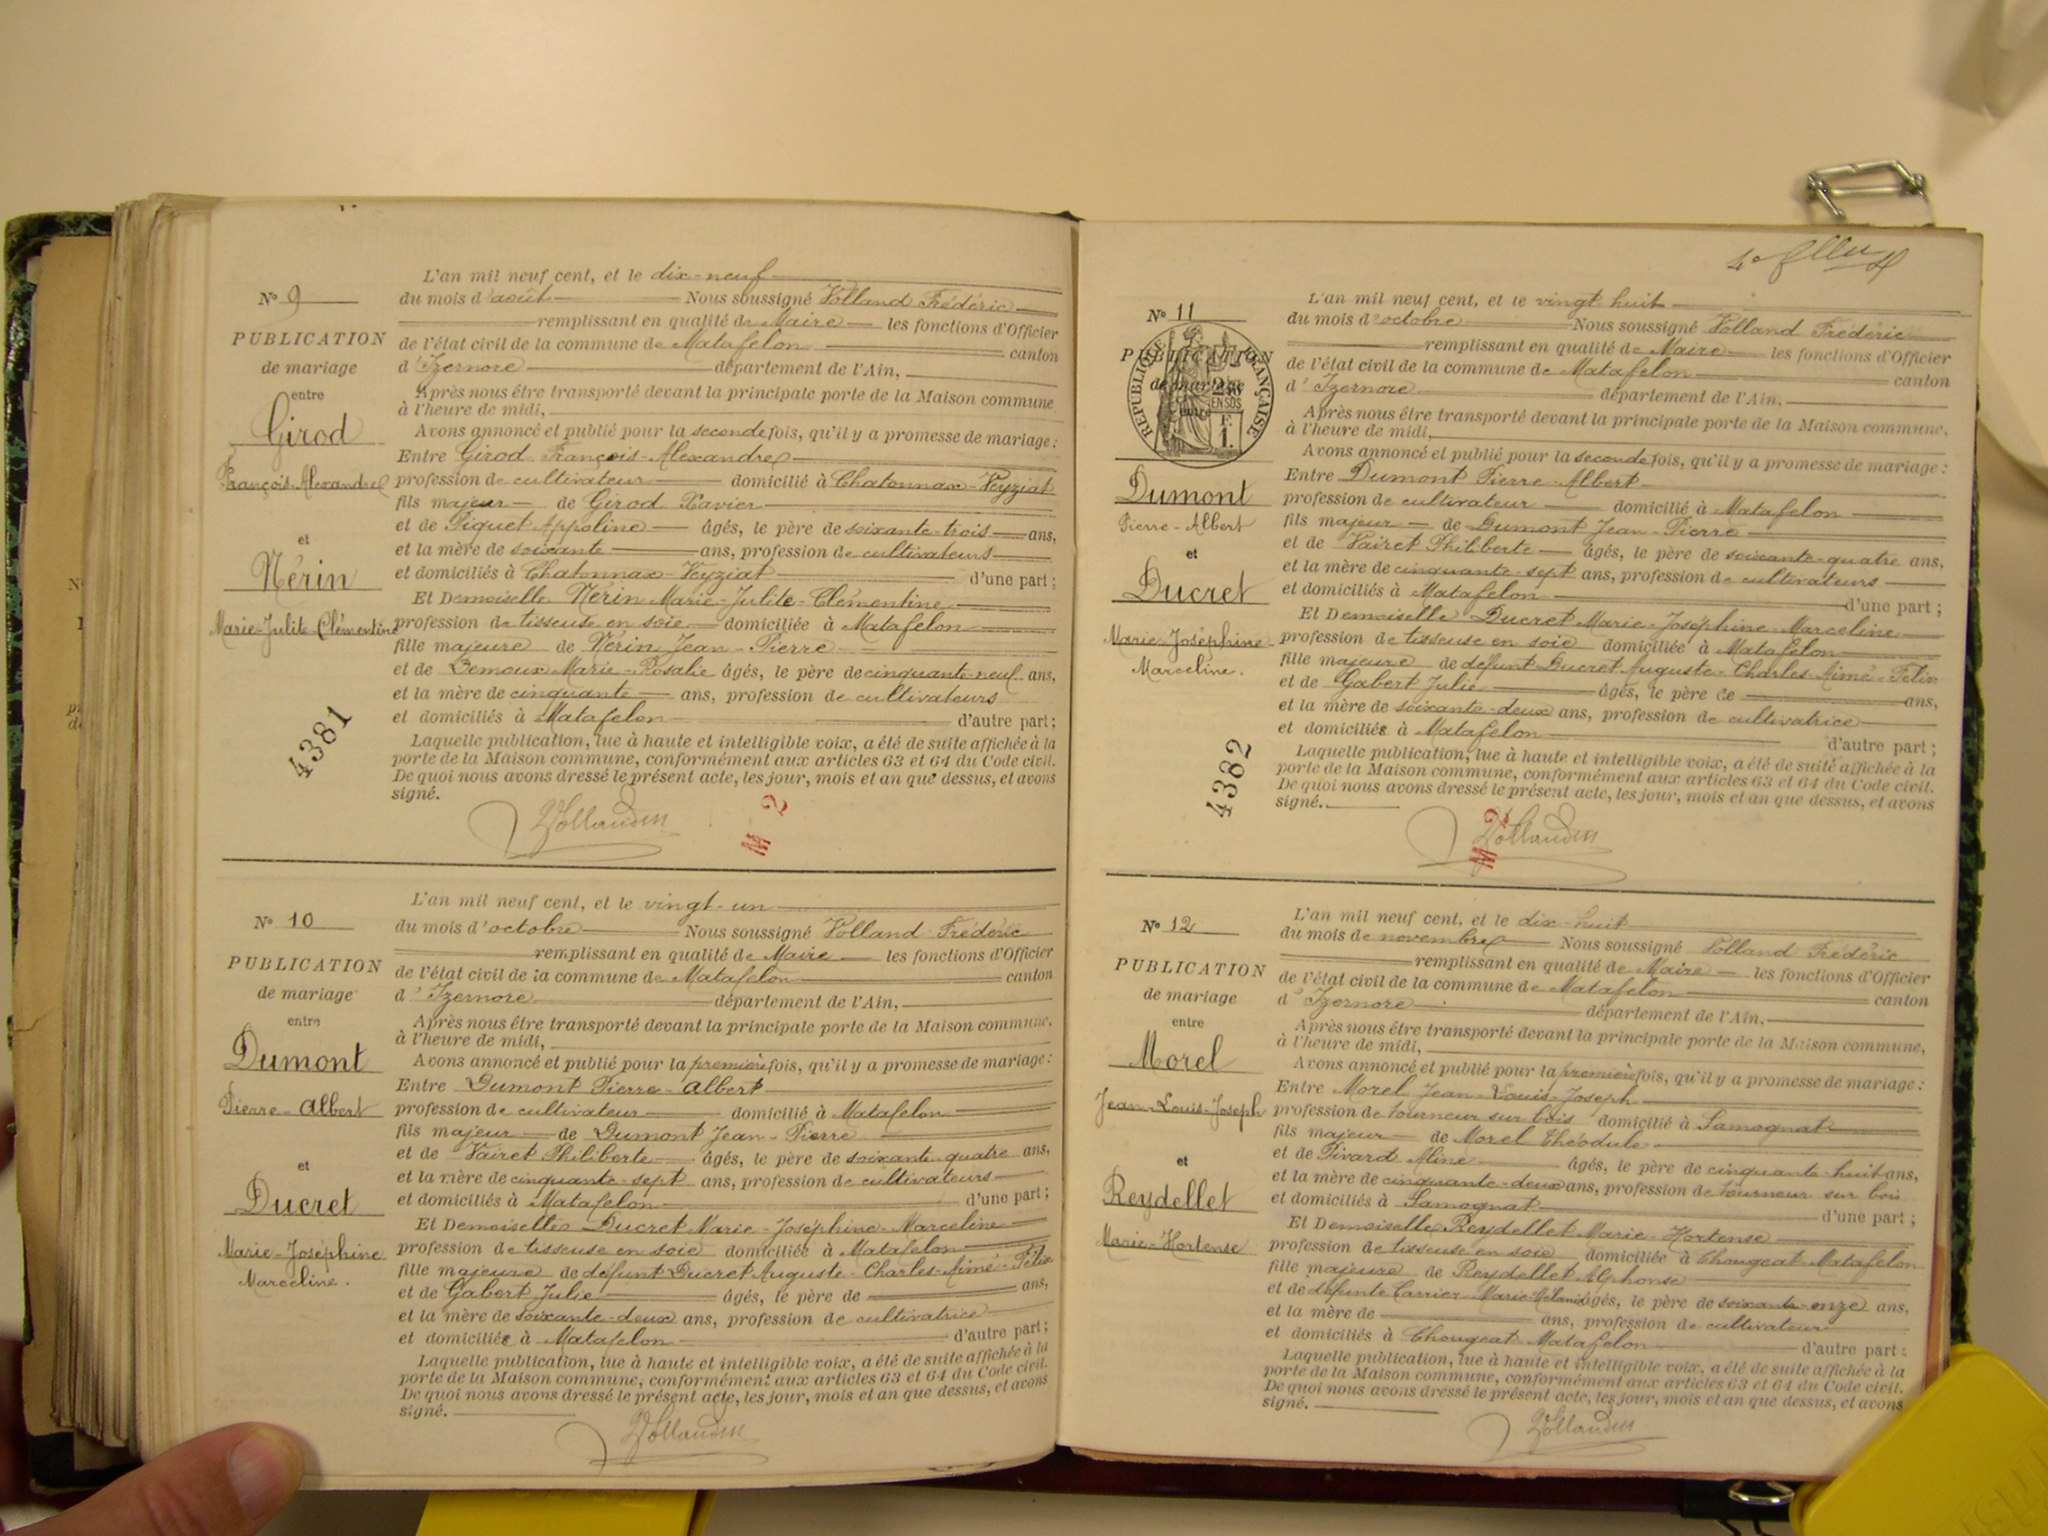 N° 9
PUBLICATION
de mariage
entre
Girod
François-Alexandre
et
Nérin
Marie-Julite Clémentine
4381
L'an mil neuf cent, et le dix-neuf
du mois d'août Nous soussigné Volland Frédéric
remplissant en qualité de Maire les fonctions d'Officier
de l'état civil de la commune de Matafelon canton
d'Izernore département de l'Ain,
Après nous être transporté devant la principale porte de la Maison commune
à l'heure de midi,
Avons annoncé et publié pour la seconde fois, qu'il y a promesse de mariage :
Entre Girod François-Alexandre
profession de cultivateur domicilié à Chatonnax-Veyziat
fils majeur de Girod Xavier
et de Piquet Appoline âgés, le père de soixante-trois ans,
et la mère de soixante ans, profession de cultivateurs
et domiciliés à Chatonnax-Veyziat d'une part ;
Et Demoiselle Nérin Marie-Julite-Clémentine
profession de tisseuse en soie domiciliée à Matafelon
fille majeure de Nérin Jean-Pierre
et de Demoux Marie-Rosalie âgés, le père de cinquante-neuf ans,
et la mère de cinquante ans, profession de cultivateurs
et domiciliés à Matafelon d'autre part ;
Laquelle publication, lue à haute et intelligible voix, a été de suite affichée à la
porte de la Maison commune, conformément aux articles 63 et 64 du Code civil.
De quoi nous avons dressé le présent acte, les jour, mois et an que dessus, et avons
signé.
M 2
N° 10
PUBLICATION
de mariage
entre
Dumont
Pierre-Albert
et
Ducret
Marie-Joséphine
Marceline.
L'an mil neuf cent, et le vingt-un
du mois d'octobre Nous soussigné Volland Frédéric
remplissant en qualité de Maire les fonctions d'Officier
de l'état civil de la commune de Matafelon canton
d'Izernore département de l'Ain,
Après nous être transporté devant la principale porte de la Maison commune.
à l'heure de midi,
Avons annoncé et publié pour la première fois, qu'il y a promesse de mariage :
Entre Dumont Pierre-Albert
profession de cultivateur domicilié à Matafelon
fils majeur de Dumont Jean-Pierre
et de Vairet Philiberte âgés, le père de soixante-quatre ans,
et la mère de cinquante-sept ans, profession de cultivateurs
et domiciliés à Matafelon d'une part ;
Et Demoiselle Ducret Marie-Joséphine-Marceline
profession de tisseuse en soie domiciliée à Matafelon
fille majeure de défunt Ducret Auguste-Charles-Aimé-Félix
et de Gabert Julie âgés, le père de ans,
et la mère de soixante-deux ans, profession de cultivatrice
et domiciliés à Matafelon d'autre part ;
Laquelle publication, lue à haute et intelligible voix, a été de suite affichée à la
porte de la Maison commune, conformément aux articles 63 et 64 du Code civil.
De quoi nous avons dressé le présent acte, les jour, mois et an que dessus, et avons
signé.
N° 11
PUBLICATION
de mariage
RÉPUBLIQUE FRANÇAISE
Dumont
Pierre-Albert
et
Ducret
Marie-Joséphine-
Marceline.
4382
L'an mil neuf cent, et le vingt huit
du mois d'octobre Nous soussigné Volland Frédéric
remplissant en qualité de Maire les fonctions d'Officier
de l'état civil de la commune de Matafelon canton
d'Izernore département de l'Ain,
Après nous être transporté devant la principale porte de la Maison commune.
à l'heure de midi,
Avons annoncé et publié pour la seconde fois, qu'il y a promesse de mariage :
Entre Dumont Pierre-Albert
profession de cultivateur domicilié à Matafelon
fils majeur de Dumont Jean-Pierre
et de Vairet Philiberte âgés, le père de soixante-quatre ans,
et la mère de cinquante-sept ans, profession de cultivateurs
et domiciliés à Matafelon d'une part ;
Et Demoiselle Ducret Marie-Joséphine-Marceline
profession de tisseuse en soie domiciliée à Matafelon
fille majeure de défunt Ducret Auguste-Charles-Aimé-Félix
et de Gabert Julie âgés, le père de ans,
et la mère de soixante-deux ans, profession de cultivatrice
et domiciliés à Matafelon d'autre part ;
Laquelle publication, lue à haute et intelligible voix, a été de suite affichée à la
porte de la Maison commune, conformément aux articles 63 et 64 du Code civil.
De quoi nous avons dressé le présent acte, les jour, mois et an que dessus, et avons
signé.
M 2
N° 12
PUBLICATION
de mariage
entre
Morel
Jean-Louis-Joseph
et
Reydellet
Marie-Hortense
L'an mil neuf cent, et le dix-huit
du mois de novembre Nous soussigné Volland Frédéric
remplissant en qualité de Maire les fonctions d'Officier
de l'état civil de la commune de Matafelon canton
d'Izernore département de l'Ain,
Après nous être transporté devant la principale porte de la Maison commune,
à l'heure de midi,
Avons annoncé et publié pour la première fois, qu'il y a promesse de mariage :
Entre Morel Jean-Louis-Joseph
profession de tourneur sur bois domicilié à Samognat
fils majeur de Morel Théodule
et de Pivard Aline âgés, le père de cinquante-huit ans,
et la mère de cinquante-deux ans, profession de tourneur sur bois
et domiciliés à Samognat d'une part ;
Et Demoiselle Reydellet Marie-Hortense
profession de tisseuse en soie domiciliée à Chougeat Matafelon
fille majeure de Reydellet Alphonse
et de défunte Carrier Marie-Mélanie âgés, le père de soixante-onze ans,
et la mère de ans, profession de cultivateur
et domiciliés à Chougeat Matafelon d'autre part :
Laquelle publication, lue à haute et intelligible voix, a été de suite affichée à la
porte de la Maison commune, conformément aux articles 63 et 64 du Code civil.
De quoi nous avons dressé le présent acte, les jour, mois et an que dessus, et avons
signé.